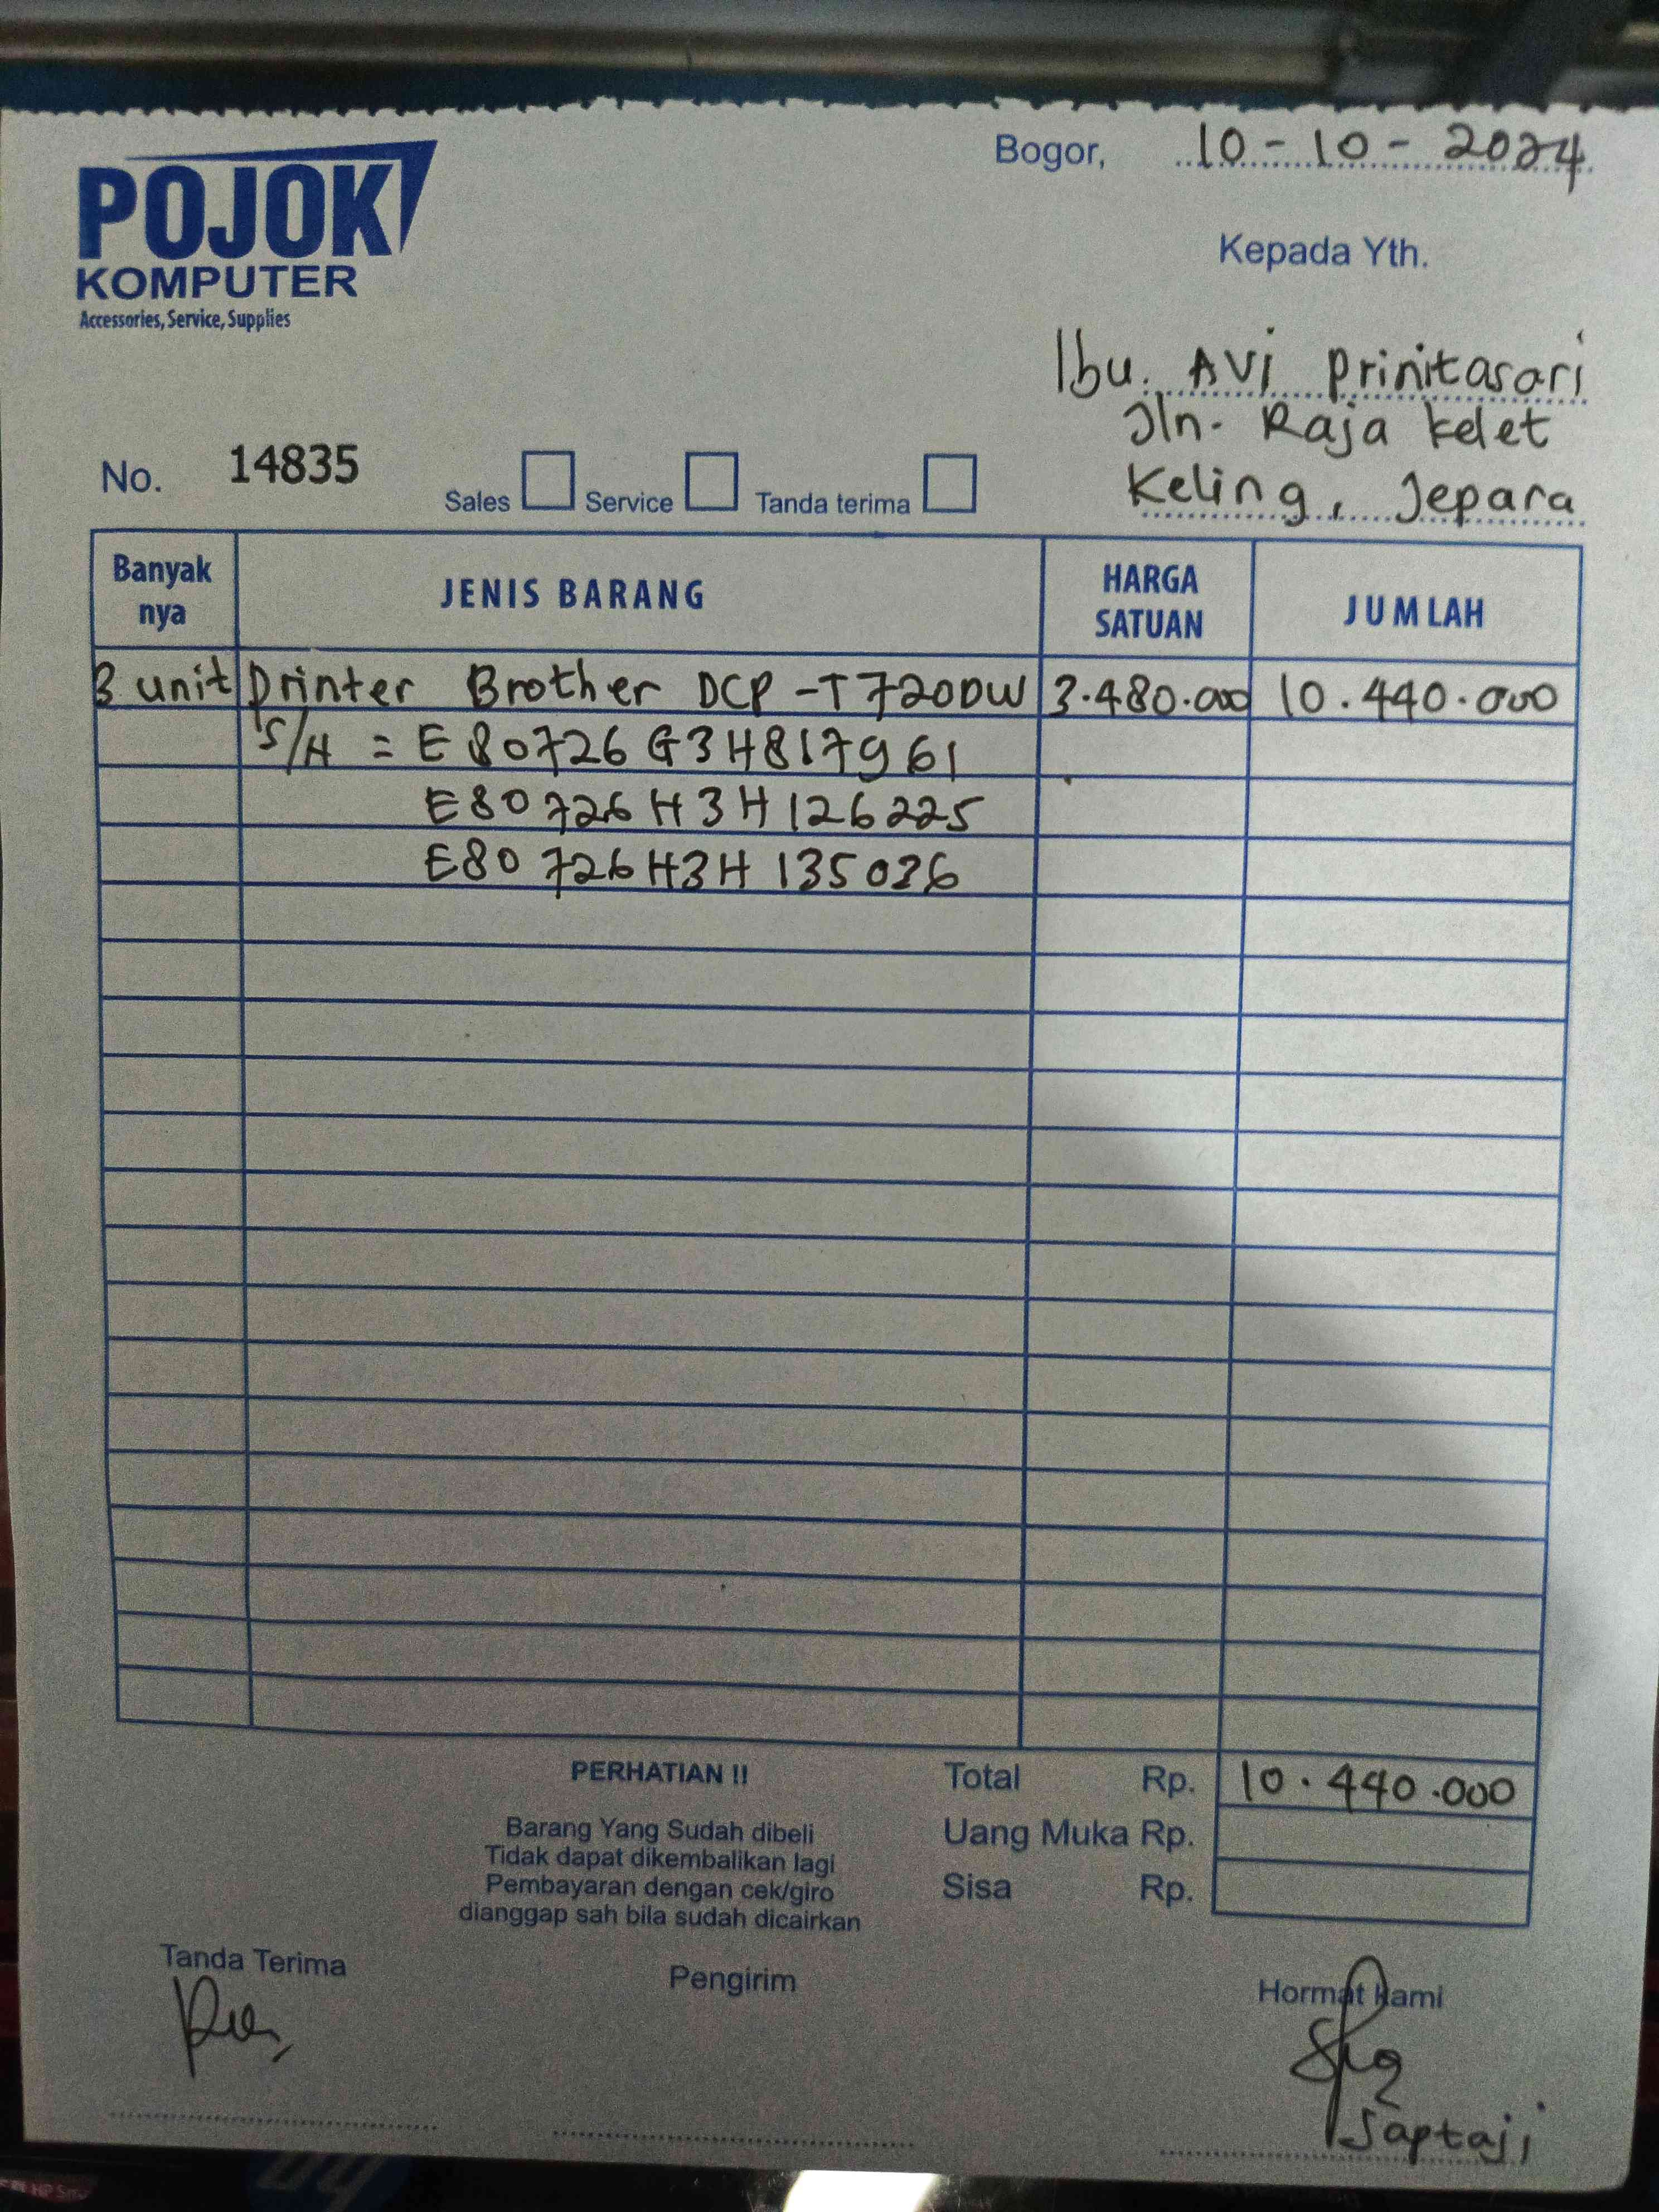 POJOK
KOMPUTER
Accessories, Service, Supplies
Bogor, 10-10-2024
Kepada Yth.
Ibu. AVi Prinitasari
Jln. Raja kelet
Keling, Jepara
No. 14835
Sales Service Tanda terima
Banyak nya JENIS BARANG HARGA SATUAN JUMLAH
3 unit Printer Brother DCP-T720DW 3.480.000 10.440.000
S/H = E80726G3H817961
E80726H3H126225
E80726H3H135036
PERHATIAN !!
Barang Yang Sudah dibeli
Tidak dapat dikembalikan lagi
Pembayaran dengan cek/giro
dianggap sah bila sudah dicairkan
Total Rp. 10.440.000
Uang Muka Rp.
Sisa Rp.
Tanda Terima Pengirim Hormat kami
Saptaji